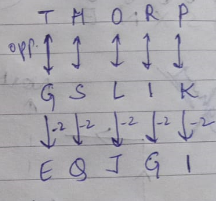 T H O R P
opp.
G S L I K
-2 -2 -2 -2 -2
E Q J G I